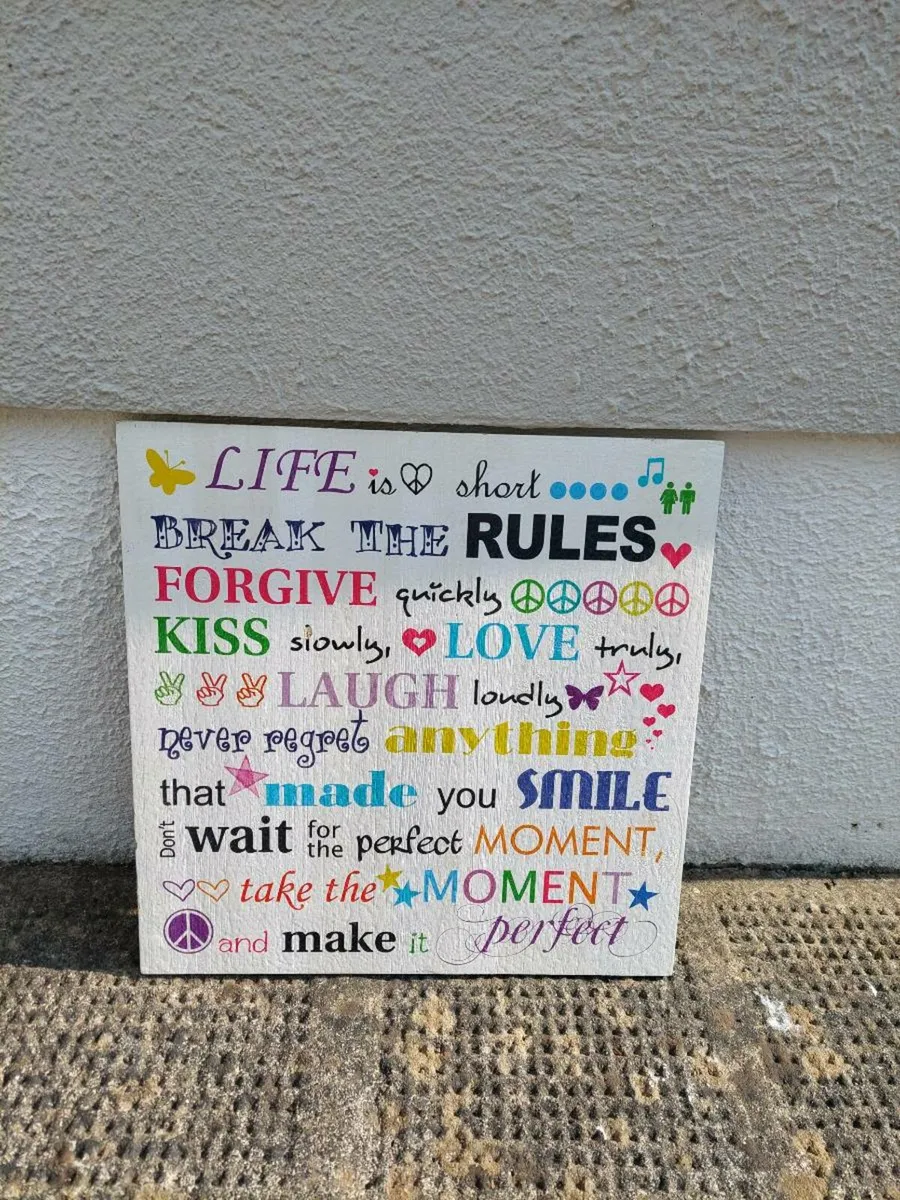 LIFE is short
BREAK THE RULES
FORGIVE quickly
KISS slowly, LOVE truly,
LAUGH loudly
never regret anything
that made you SMILE
Don't wait for the perfect MOMENT,
take the MOMENT
and make it perfect